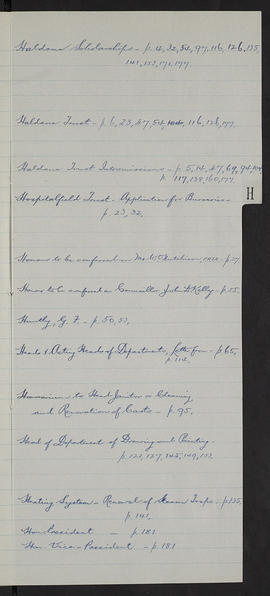 Haldane Scholarships - p. 4, 32, 54, 97, 116, 126, 135,
141, 153, 171, 177.
Haldane Trust - p 6, 23, 47, 54, 104, 116, 126, 177.
Haldane Trust Intermissions - p. 5, 14, 47, 69, 94, 104
p 119, 138, 160, 177.
H
Hospitalfield Trust - Application for Bursaries
p. 23, 32.
Honour to be conferred on Mr. W. Hutchison - p. 27.
Honor to be conferred on Councillor John F. Kelly - p. 55.
Huntly, G. F. - p. 50, 53,
Heads & Acting Heads of Departments, Letter from - p 65,
p. 112.
Honorarium to Head Janitor re Cleaning
and Renovation of Casts - p. 95,
Head of Department of Drawing and Painting -
p. 121, 127, 145, 149, 153.
Heating System - Renewal of Steam Traps - p. 135,
p. 141,
Hon President - p. 181
Hon. Vice-President - p. 181